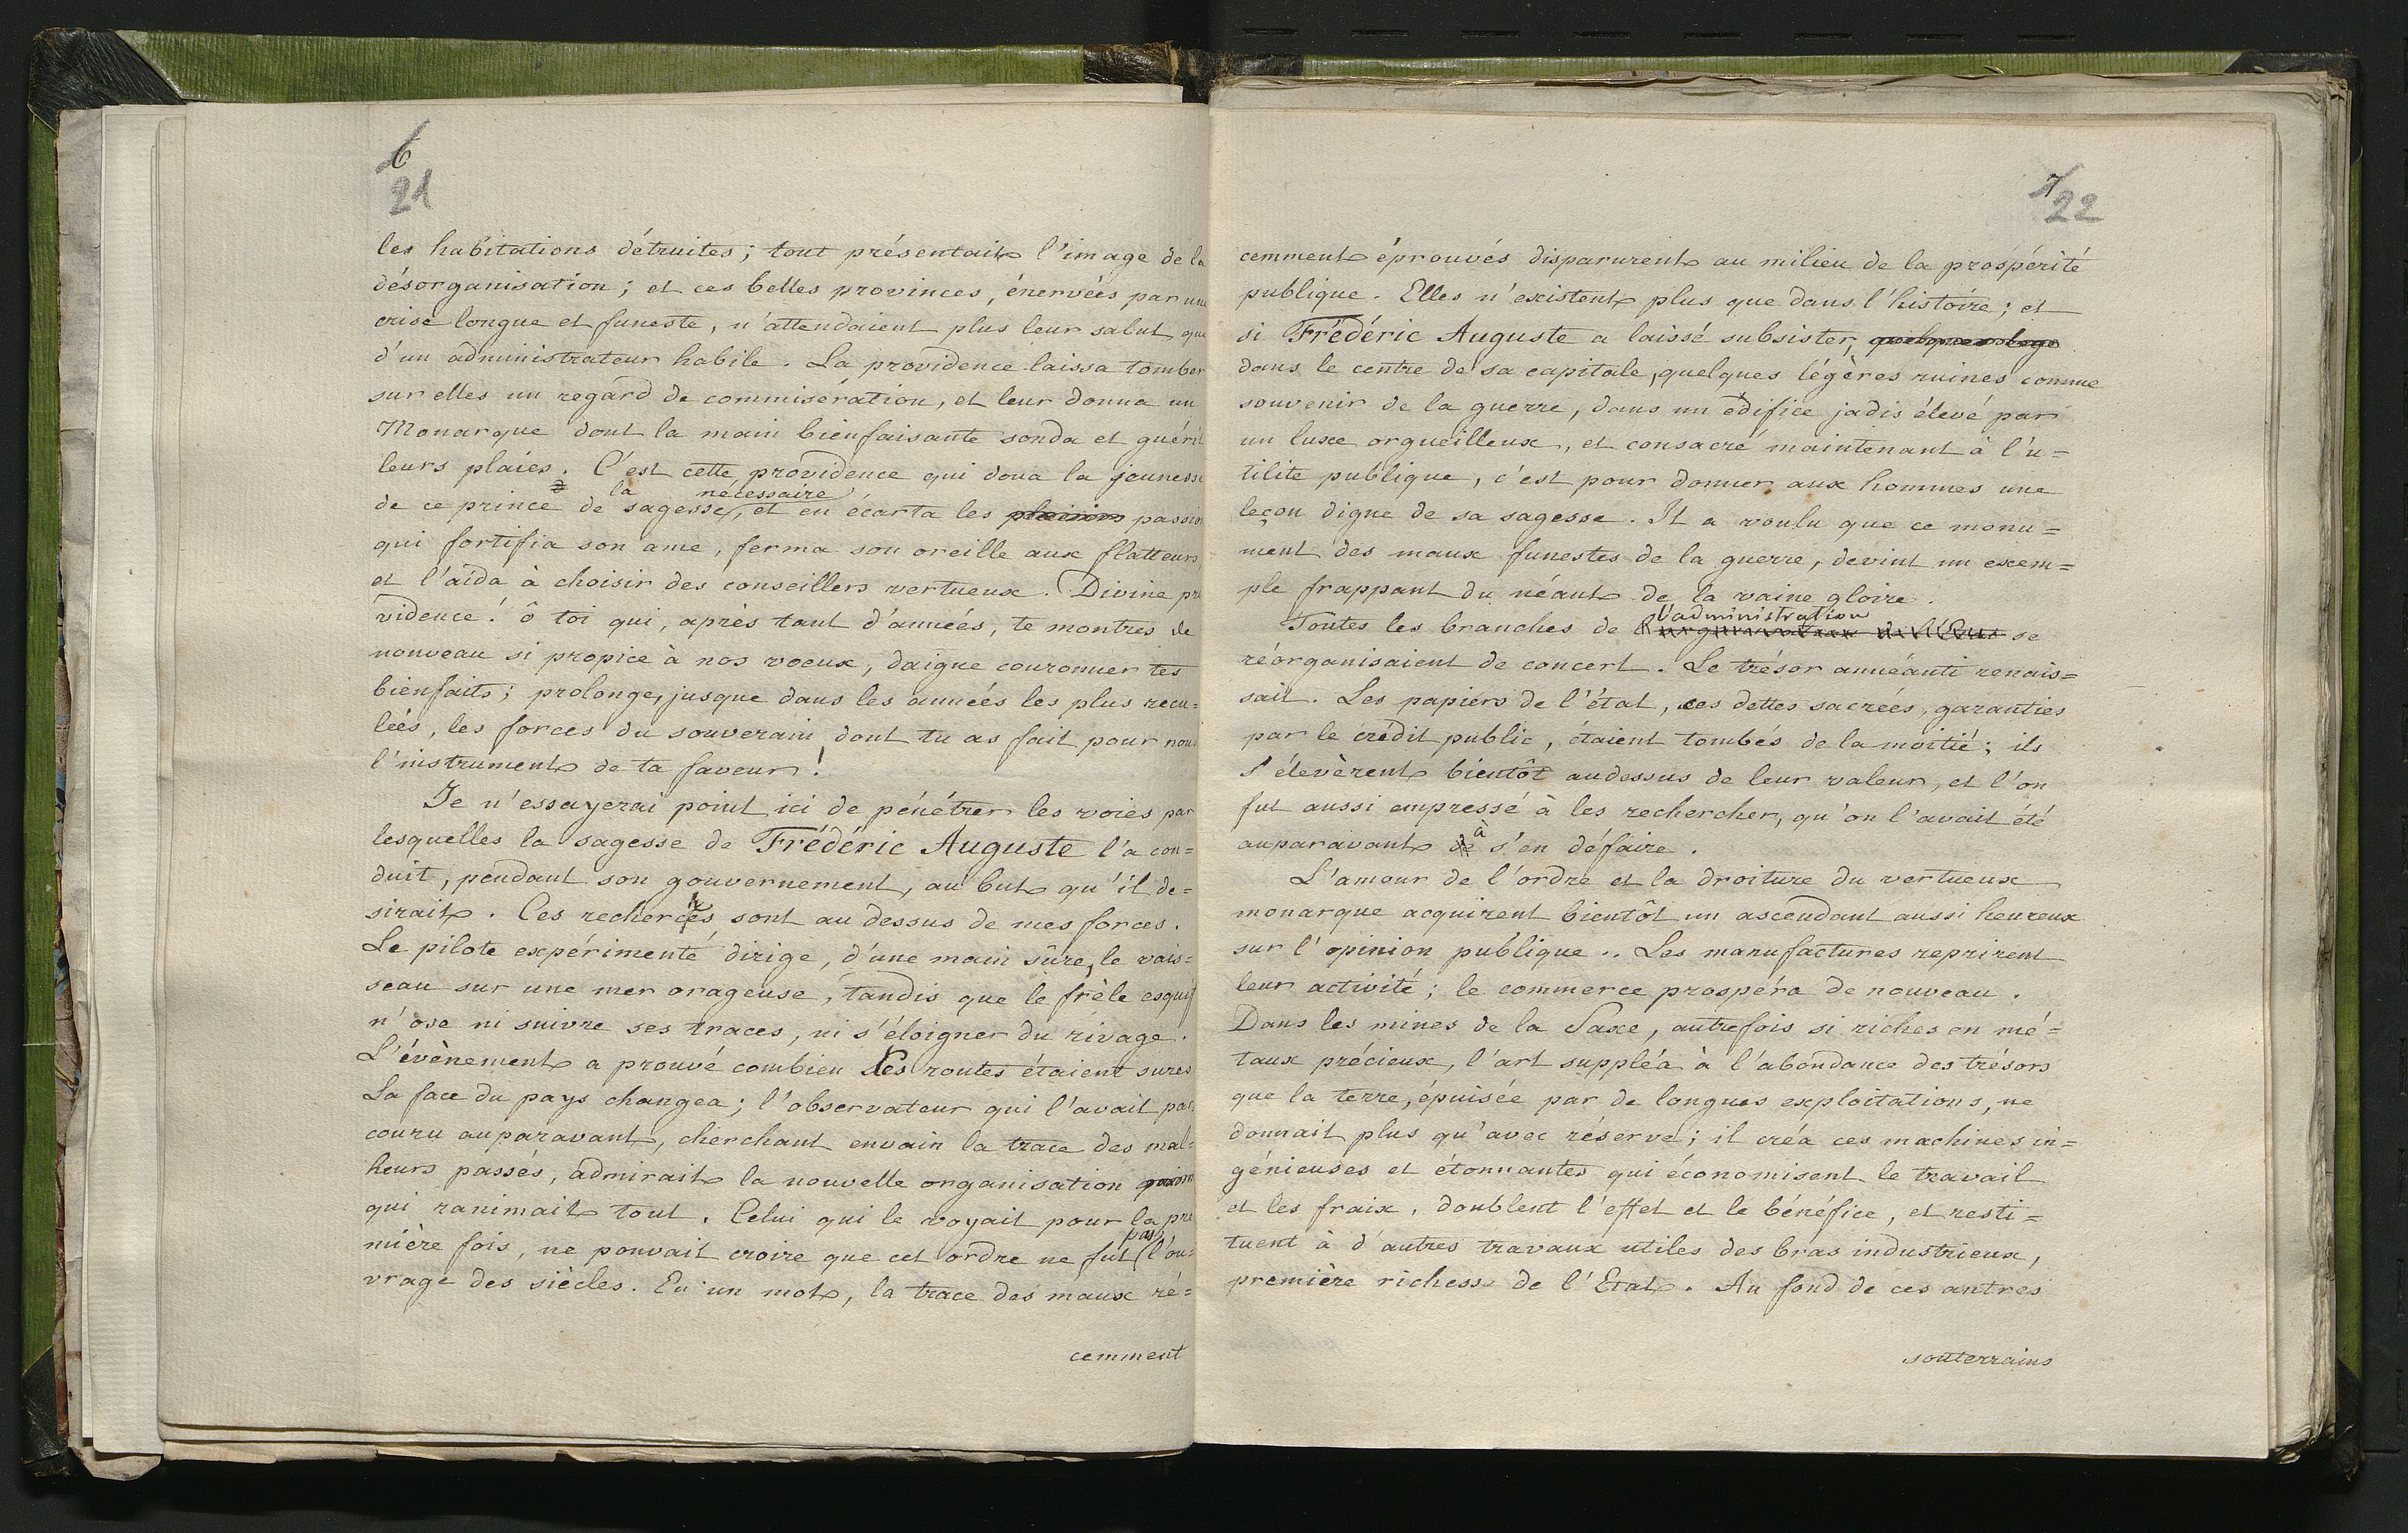 6
21
les habitations détruites; tout présentait l'image de la
désorganisation; et ces belles provinces, énervées par une
crise longue et funeste, n'attendaient plus leur salut que
d'un administrateur habile. La providence laissa tomber
sur elles un regard de commisération, et leur donna un
Monarque dont la main bienfaisante sonda et guérit
leurs plaies. C'est cette providence qui doua la jeunesse
la nécessaire
de ce prince de sagesse, et en écarta les plaisirs passion
qui fortifia son ame, ferma son oreille aux flatteurs
et l'aida à choisir des conseillers vertueux. Divine pro
vidence! ô toi qui, après tant d'années, te montres de
nouveau si propice à nos voeux, daigne couronner tes
bienfaits; prolonge, jusque dans les années les plus recu=
lées, les forces du souverain, dont tu as fait pour nous
l'instrument de ta faveur!
Je n'essayerai point ici de pénétrer les voies par
lesquelles la sagesse de Frédéric Auguste l'a con=
duit, pendant son gouvernement, au but qu'il de=
sirait. Ces recherches sont au dessus de mes forces.
Le pilote expérimenté dirige, d'une main sûre, le vais=
seau sur une mer orageuse, tandis que le frêle esquif
n'ose ni suivre ses traces, ni s'éloigner du rivage.
L'évènement a prouvé combien les routes étaient sures
La face du pays changea; l'observateur qui l'avait par
couru auparavant, cherchant envain la trace des mal=
heurs passés, admirait la nouvelle organisation
qui ranimait tout. Celui qui le voyait pour la pre
pas
mière fois, ne pouvait croire que cet ordre ne fut l'ou=
vrage des siècles. En un mot, la trace des maux ré=
cemment
7
22
cemment éprouvés disparurent au milieu de la prospérité
publique. Elles n'existent plus que dans l'histoire; et
si Frédéric Auguste a laissé subsister, quelques lege
dans le centre de sa capitale, quelques légères ruines comme
souvenir de la guerre, dans un édifice jadis élevé par
un luxe orgueilleux, et consacré maintenant à l'u=
tilite publique, c'est pour donner aux hommes une
leçon digne de sa sagesse. Il a voulu que ce monu=
ment des maux funestes de la guerre, devint un exem=
ple frappant du néant de la vaine gloire.
l'administration
Toutes les branches de l'organisation de l'Etat se
réorganisaient de concert. Le trésor annéanti renais=
sait. Les papiers de l'état, ces dettes sacrées, garanties
par le crédit public, étaient tombés de la moitié; ils
s'élevèrent bientôt audessus de leur valeur, et l'on
fut aussi empressé à les rechercher, qu'on l'avait été
à
auparavant de s'en défaire.
L'amour de l'ordre et la droiture du vertueux
monarque acquirent bientôt un ascendant aussi heureux
sur l'opinion publique.. Les manufactures reprirent
leur activité; le commerce prospéra de nouveau.
Dans les mines de la Saxe, autrefois si riches en mé=
taux précieux, l'art suppléa à l'abondance des trésors
que la terre, épuisée par de longues exploitations, ne
donnait plus qu'avec réserve; il créa ces machines in=
génieuses et étonnantes qui économisent le travail
et les fraix, doublent l'effet et le bénéfice, et resti=
tuent à d'autres travaux utiles des bras industrieux,
première richesse de l'Etat. Au fond de ces antres
souterrains